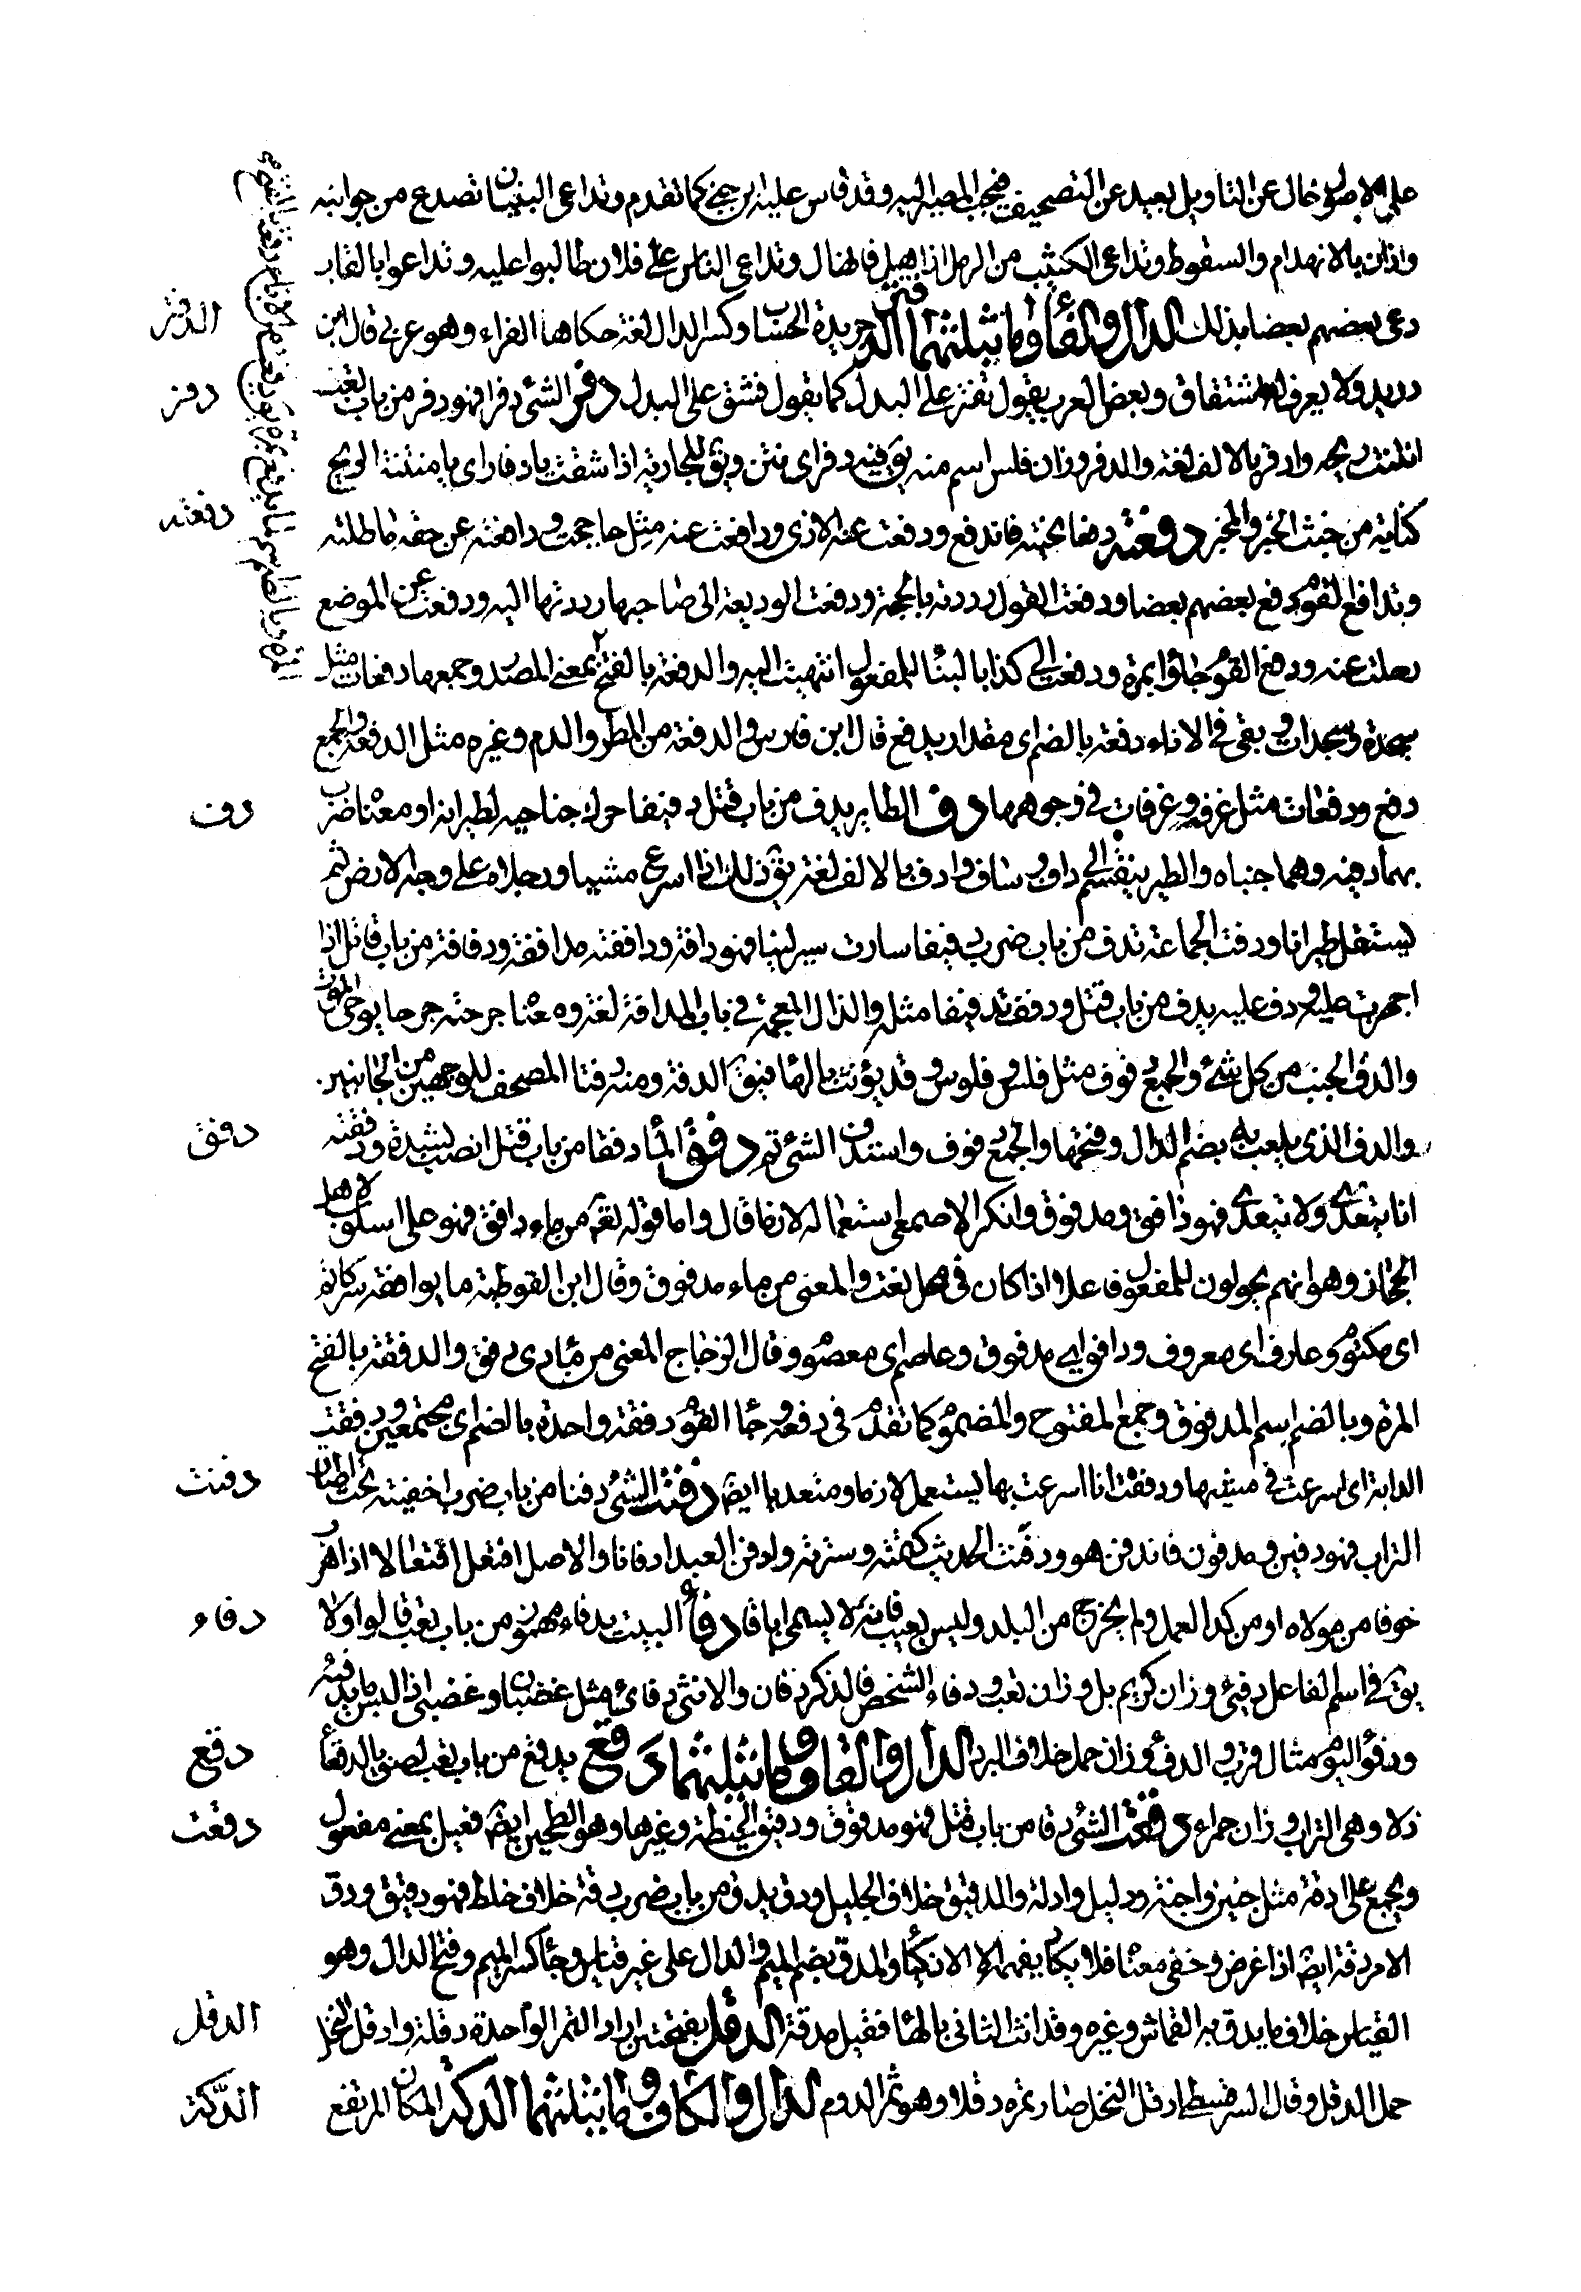 على الاصل خال عن التاويل بعيد عن التصحيف فيجب المصير اليه وقد قاس عليه ابن جني كما تقدم وتداعى البنيان تصدع من جوانبه
واذن بالانهدام والسقوط وتداعى الكثيب من الرمل اذا هيل فانهال وتداعى الناس على فلان طالبوا عليه وتداعوا بالالقاب
دعى بعضهم بعضا بذلك الدال والفاء وما يثلثهما الدفتر جريدة الحساب وكسر الدال لغة حكاها الفراء وهو عربي قال ابن
الدفتر
دريد ولا يعرف له اشتقاق وبعض العرب يقول تفتر على البدل كما يقول فشق على البدل دفر الشئ دفرا فهو دفر من باب تعب
دفر
انتنت ريحه وادفر بالالف لغة والدفر وزان فلس اسم منه يق فيه دفر اى نتن ويق للجارية اذا شتمت يا دفار اى يا منتنة الريح
كناية من خبث الخبر والمخبر دفعته دفعا نحيته فاندفع ودفعت عنه الاذى ودافعت عنه مثل حاججت ودافعته عن حقه ماطلته
دفعته
وتدافع القوم دفع بعضهم بعضا ودفعت القول رددته بالحجة ودفعت الوديعة الى صاحبها رددتها اليه ودفعت عن الموضع
رحلت عنه ودفع القوم جاؤا بمرة ودفعت الى كذا بالبناء للمفعول انتهيت اليه والدفعة بالفتح بمعنى المصدر وجمعها دفعات مثل
سجدة وسجدات وبقى فى الاناء دفعة بالضم اى مقدار يدفع قال ابن فارس والدفعة من المطر والدم وغيره مثل الدفقة والجمع
دفع ودفعات مثل غرفة وغرفات في وجوهها دف الطاير يدف من باب قتل دفيفا حرك جناحيه لطيرانه او معناه ضرب
دف
بهما دفيه وهما جنباه
يستقل طيرانا ودفت الجماعة تدف من باب ضرب دفيفا سارت سيرا لينا فهو دافة ودافقته مدافة ودفافة من باب قاتل اذا
اجهزت عليه ودف عليه يدف من باب قتل ودففت تدفيفا مثله والذال المعجمة في باب المدافة لغة ومعناه جرحته جرحا يوحى الموت
والدف الجنب من كل شئ والجمع دفوف مثل فلس وفلوس وقد يؤنث بالهاء فيق الدفة ومنه دفتا المصحف للوجهين من الجانبين
والدف الذى يلعب به بضم الدال وفتحها والجمع دفوف واستدف الشئ تم دفق الماء دفقا من باب قتل انصب بشدة ودفقته
دفق
انا يتعدى ولا يتعدى فهو دافق ومدفوق وانكر الاصمعى استعماله لازما قال واما قوله تعه من ماء دافق فهو على اسلوب لاهل
الحجاز وهو انهم يحولون المفعول فاعلا اذا كان في محل نعت والمعنى من ماء مدفوق وقال ابن القوطية ما يوافقه سر كاتم
اى مكتوم وعارف اى معروف ودافق اى مدفوق وعاصم اى معصوم وقال الزجاج المعنى من ماء ذى دفق والدفقة بالفتح
المرة وبالضم اسم المدفوق وجمع المفتوح والمضموم كما تقدم في دفعة وجاء القوم دفقة واحدة بالضم اى مجتمعين ودفقت
الدابة اى اسرعت في مشيها ودفقتها انا اسرعت بها يستعمل لازما ومتعديا ايضا دفنت الشئ دفنا من باب ضرب اخفيته تحت اطباق
دفنت
التراب فهو دفين ومدفون فاندفن هو ودفنت الحديث كتمته وسترته وادفن العبد ادفانا والاصل افتعل افتعالا اذا هرب
خوفا من مولاه او من كد العمل ولم يخرج من البلد وليس بعيب فانه لا يسمى اباقا دفأ البيت يدفاء مهموز من باب تعب قالوا ولا
دفاء
يق في اسم الفاعل دفئ وزان كريم بل وزان تعب ودفاء الشخص فالذكر دفان والانثى دفاى مثل غضبان وغضبى اذا لبس ما يدفيه
ودفؤ اليوم مثال قرب والدفء وزان حمل خلاف البرد الدال والقاف وما يثلثهما دقع يدقع من باب تعب لصق بالدقعاء
دقع
ذلا وهى التراب وزان حمراء دققت الشئ دقا من باب قتل فهو مدقوق ودقيق الحنطة وغيرها وهو الطحين ايضا فعيل بمعنى مفعول
دققت
ويجمع على ادقة مثل جنين واجنة ودليل وادلة والدقيق خلاف الجليل ودق يدق من باب ضرب دقة خلاف غلظ فهو دقيق ودق
الامر دقة ايضا اذا غمض وخفى معناه فلا يكاد يفهمه الا الاذكياء والمدق بضم الميم والدال على غير قياس وجاء كسر الميم وفتح الدال وهو
القياس خلاف ما يدق به القماش وغيره وقد انث الثانى بالهاء فقيل مدقة الدقل بفتحتين اردا التمر الواحدة دقلة وادقل النخل
الدقل
حمل الدقل وقال السرقسطى ادقل النخل صار تمره دقلا وهو تمر الدوم الدال والكاف وما يثلثهما الدكة المكان المرتفع
الدكة